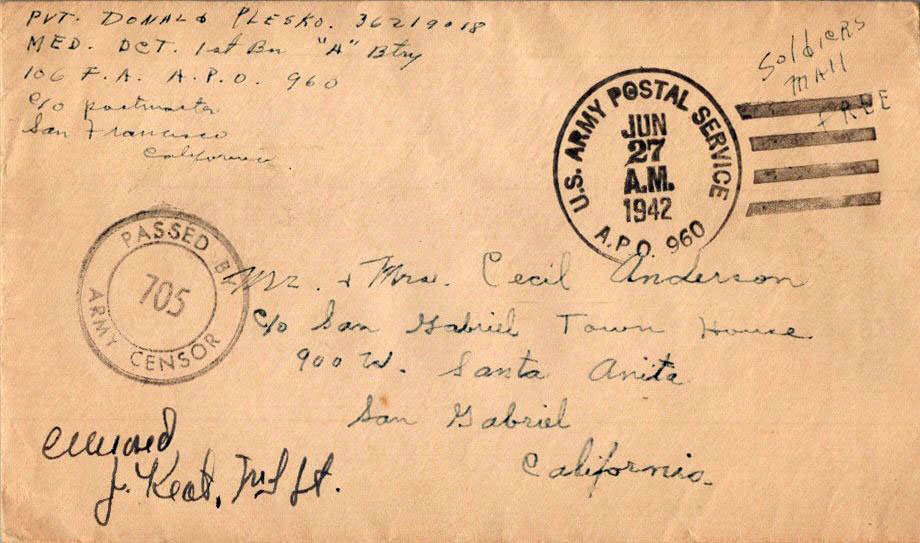 PVT. DONALD PLESKO. 36219018
MED. DCT. 1st Bn "A" Btry
106 F.A. A.P.O. 960
c/o postmaster
San Francisco
California
Soldiers
Mail
FREE
U.S. ARMY POSTAL SERVICE
JUN
27
A.M.
1942
A.P.O. 960
PASSED BY
705
ARMY CENSOR
Mr. & Mrs. Cecil Anderson
c/o San Gabriel Town House
900 W. Santa Anita
San Gabriel
California.
J.
Lt.